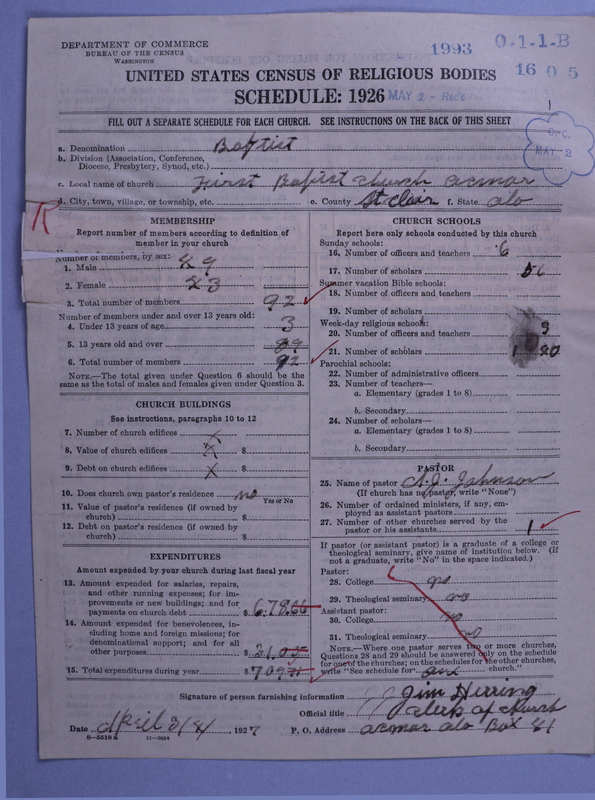 DEPARTMENT OF COMMERCE
BUREAU OF THE CENSUS
WASHINGTON
1993 0-1-1-B
1605
UNITED STATES CENSUS OF RELIGIOUS BODIES
SCHEDULE: 1926 MAY 2 - Rec'd
FILL OUT A SEPARATE SCHEDULE FOR EACH CHURCH. SEE INSTRUCTIONS ON THE BACK OF THIS SHEET
O.C.
MAY 2
a. Denomination Baptist
b. Division (Association, Conference,
Diocese, Presbytery, Synod, etc.)
c. Local name of church First Baptist church acmar
d. City, town, village, or township, etc. e. County St Clair f. State ala
R
MEMBERSHIP
Report number of members according to definition of
member in your church
Number of members, by sex:
1. Male
2. Female 23
3. Total number of members 92
Number of members under and over 13 years old:
4. Under 13 years of age 3
5. 13 years old and over 89
6. Total number of members 92
NOTE.—The total given under Question 6 should be the
same as the total of males and females given under Question 3.
CHURCH BUILDINGS
See instructions, paragraphs 10 to 12
7. Number of church edifices x
8. Value of church edifices x $
9. Debt on church edifices x $
10. Does church own pastor's residence no
Yes or No
11. Value of pastor's residence (if owned by
church) $
12. Debt on pastor's residence (if owned by
church) $
EXPENDITURES
Amount expended by your church during last fiscal year
13. Amount expended for salaries, repairs,
and other running expenses; for im-
provements or new buildings; and for
payments on church debt $ 678.66
14. Amount expended for benevolences, in-
cluding home and foreign missions; for
denominational support; and for all
other purposes $ 31.05
15. Total expenditures during year $ 709.71
CHURCH SCHOOLS
Report here only schools conducted by this church
Sunday schools:
16. Number of officers and teachers 6
17. Number of scholars
Summer vacation Bible schools:
18. Number of officers and teachers
19. Number of scholars
Week-day religious schools:
20. Number of officers and teachers 3
21. Number of scholars 20
Parochial schools:
22. Number of administrative officers
23. Number of teachers—
a. Elementary (grades 1 to 8)
b. Secondary
24. Number of scholars—
a. Elementary (grades 1 to 8)
b. Secondary
PASTOR
25. Name of pastor A. J. Johnson
(If church has no pastor, write "None")
26. Number of ordained ministers, if any, em-
ployed as assistant pastors
27. Number of other churches served by the
pastor or his assistants 1
If pastor (or assistant pastor) is a graduate of a college or
theological seminary, give name of institution below. (If
not a graduate, write "No" in the space indicated.)
Pastor:
28. College no
29. Theological seminary no
Assistant pastor:
30. College no
31. Theological seminary no
NOTE.—Where one pastor serves two or more churches,
Questions 28 and 29 should be answered only on the schedule
for one of the churches; on the schedules for the other churches,
write "See schedule for church."
Signature of person furnishing information Jim Herring
Official title Clerk of church
Date April 1927 P. O. Address acmar ala Box 41
8-5518a 11-9024